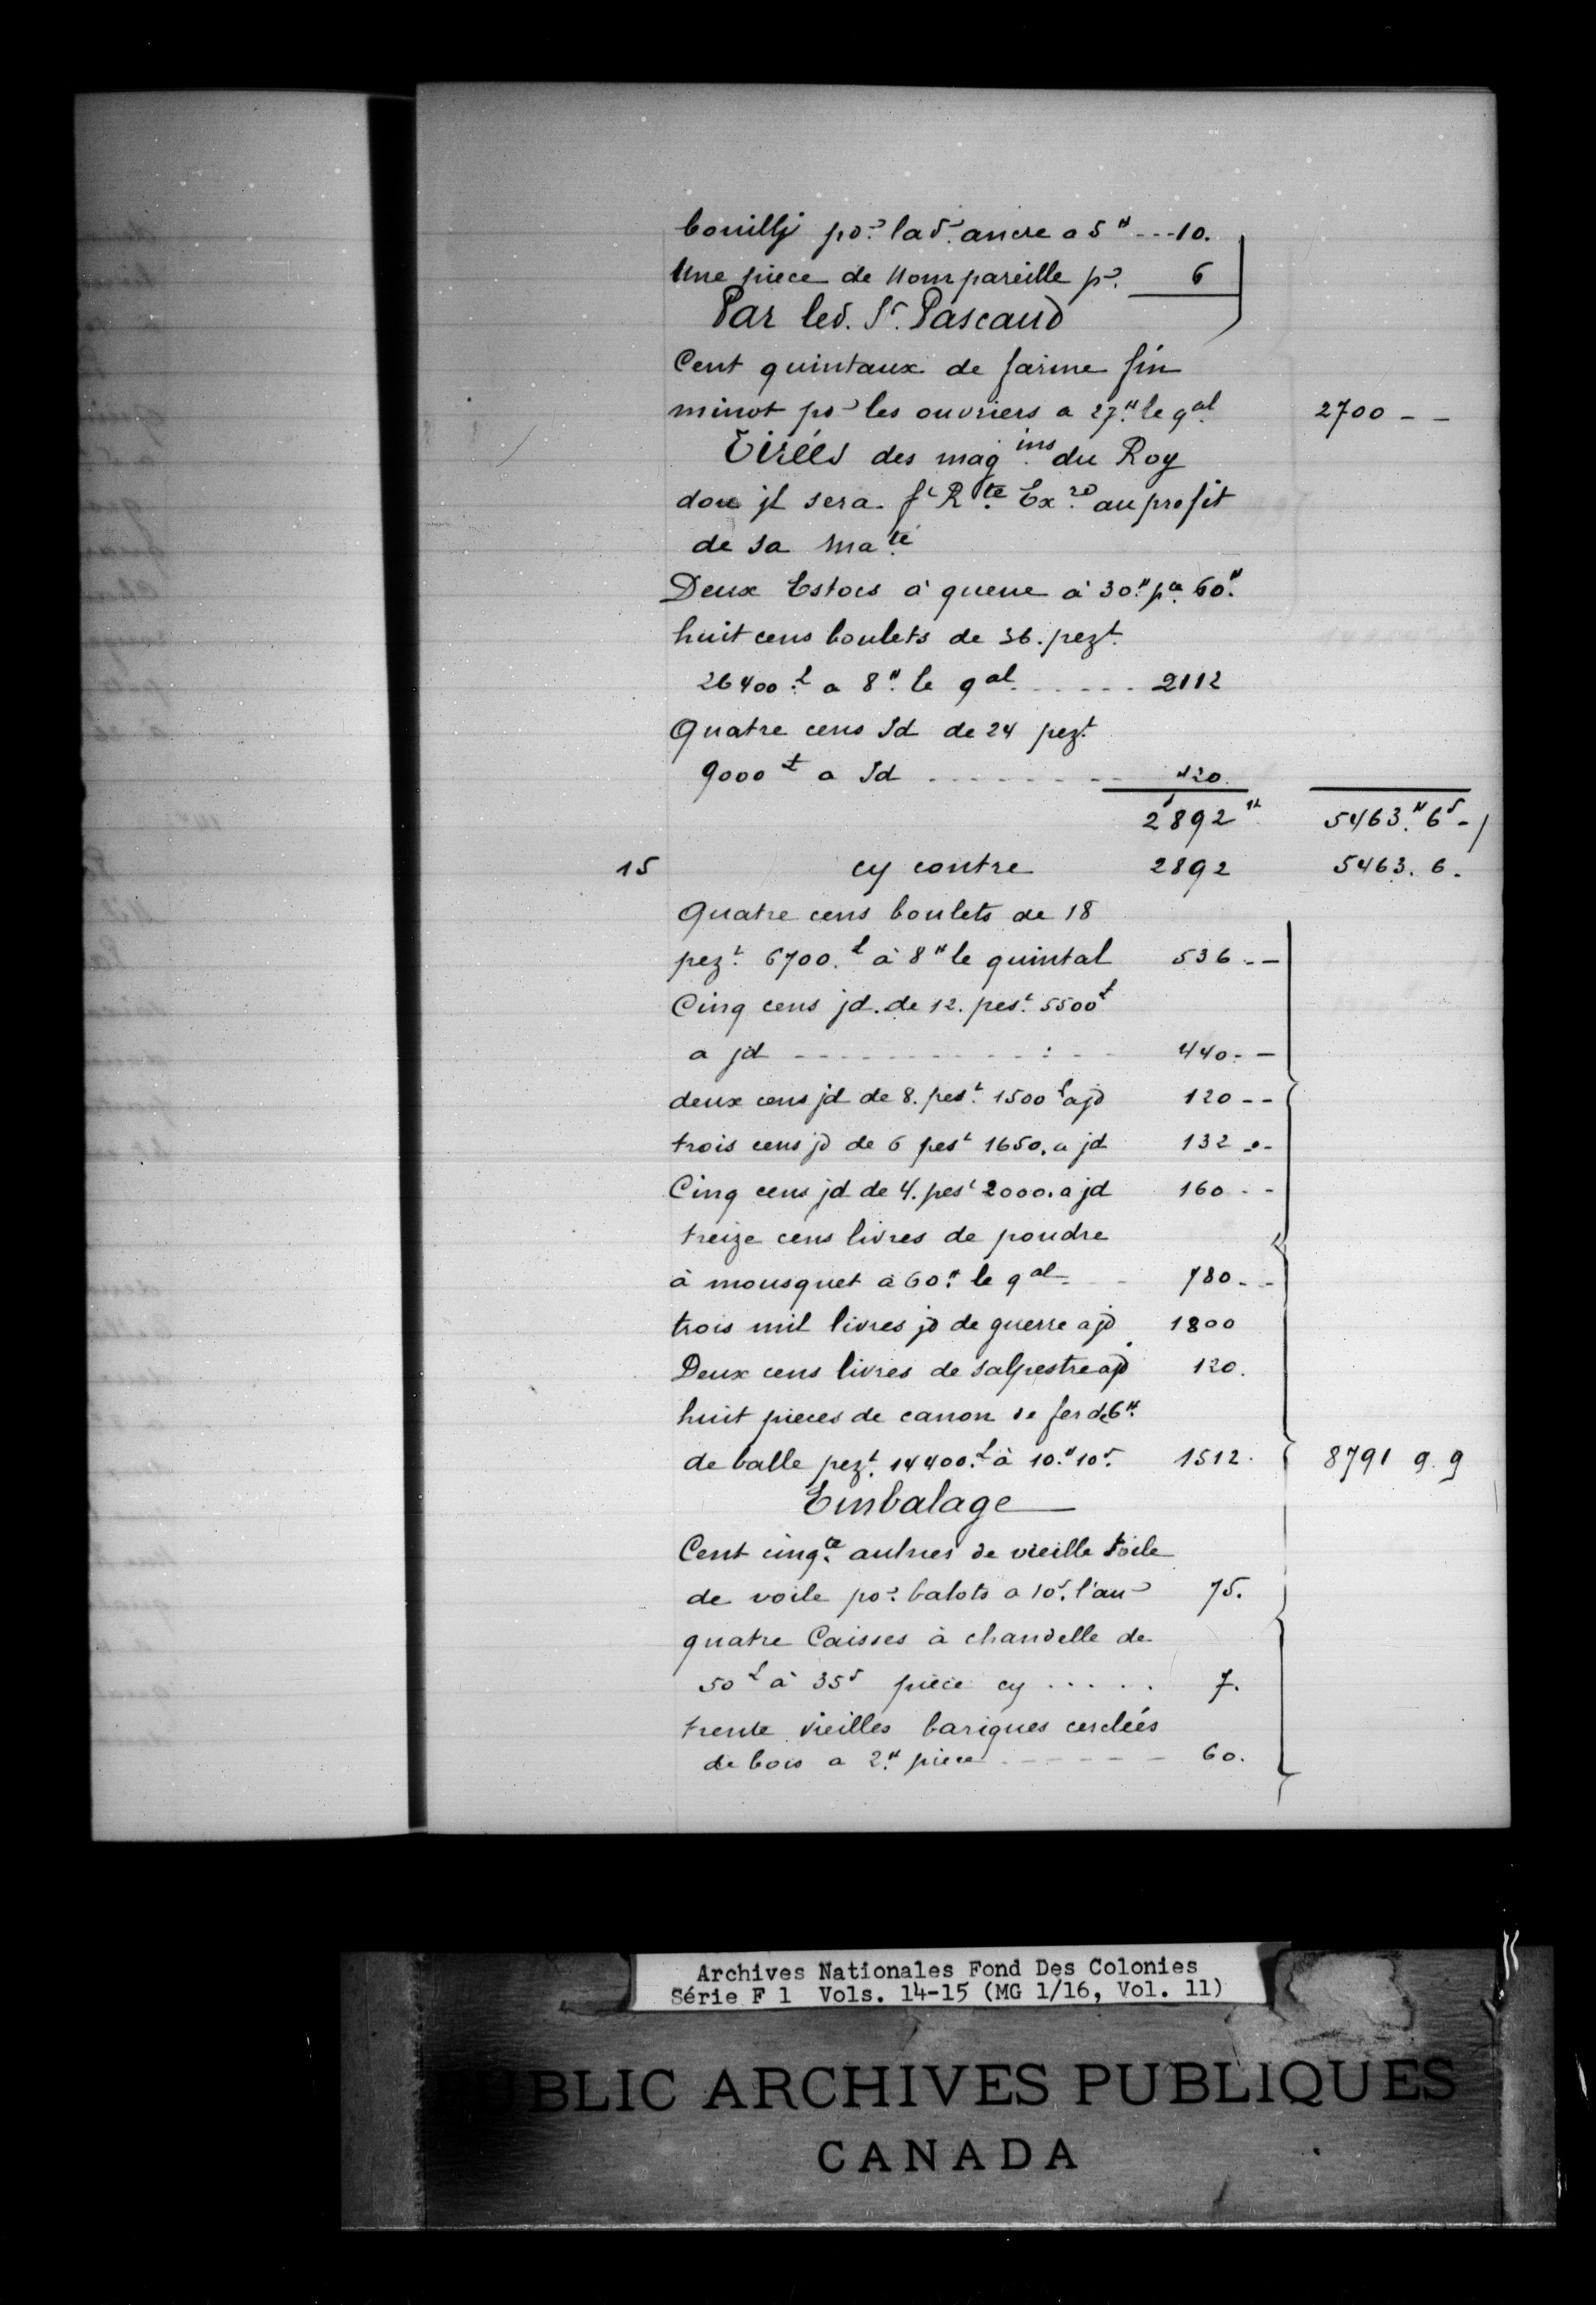 bouilly po.r la d. ancre a 5# --- 10.
Une piece de Nompareille p.r 6
Par led. Sr. Pascaud
Cent quintaux de farine fin
minot po.r les ouvriers a 27# le qal 2700 - -
Tirées des mag.ins du Roy
dou jl sera ft R.te Ex.re au profit
de sa Ma.té
Deux Estocs à queue à 30# p.ce 60#
huit cens boulets de 36. pezt.
26400.l a 8# le qal ..... 2112
Quatre cens Id de 24 pezt.
9000l a Id -------- 720.
2892# 5463.# 6s -
15 cy contre 2892 5463. 6.
Quatre cens boulets de 18
pezt. 6700.l à 8# le quintal 536 - -
Cinq cens jd. de 12. pest. 5500l
a jd ---------- 440. -
deux cens jd de 8. pest. 1500l a jd 120 - -
trois cens jd de 6 pest 1650. a jd 132 - -
Cinq cens jd de 4. pest 2000. a jd 160 - -
treize cens livres de poudre
à mousquet à 60# le qal - - 780 - -
trois mil livres jd de guerre a jd 1800
Deux cens livres de salpestre a jd 120.
huit pieces de canon de fer de 6#
de balle pezt. 14400.l à 10.# 10s. 1512. 8791 9. 9
Embalage
Cent cinq.te aulnes de vieille toile
de voile po.r balots a 10s. l'au 75.
quatre Caisses à chandelle de
50l à 35s piece cy ..... 7.
trente vieilles bariques cerclées
de bois a 2.# piece ------ 60.
Archives Nationales Fond Des Colonies
Série F 1 Vols. 14-15 (MG 1/16, Vol. 11)
PUBLIC ARCHIVES PUBLIQUES
CANADA